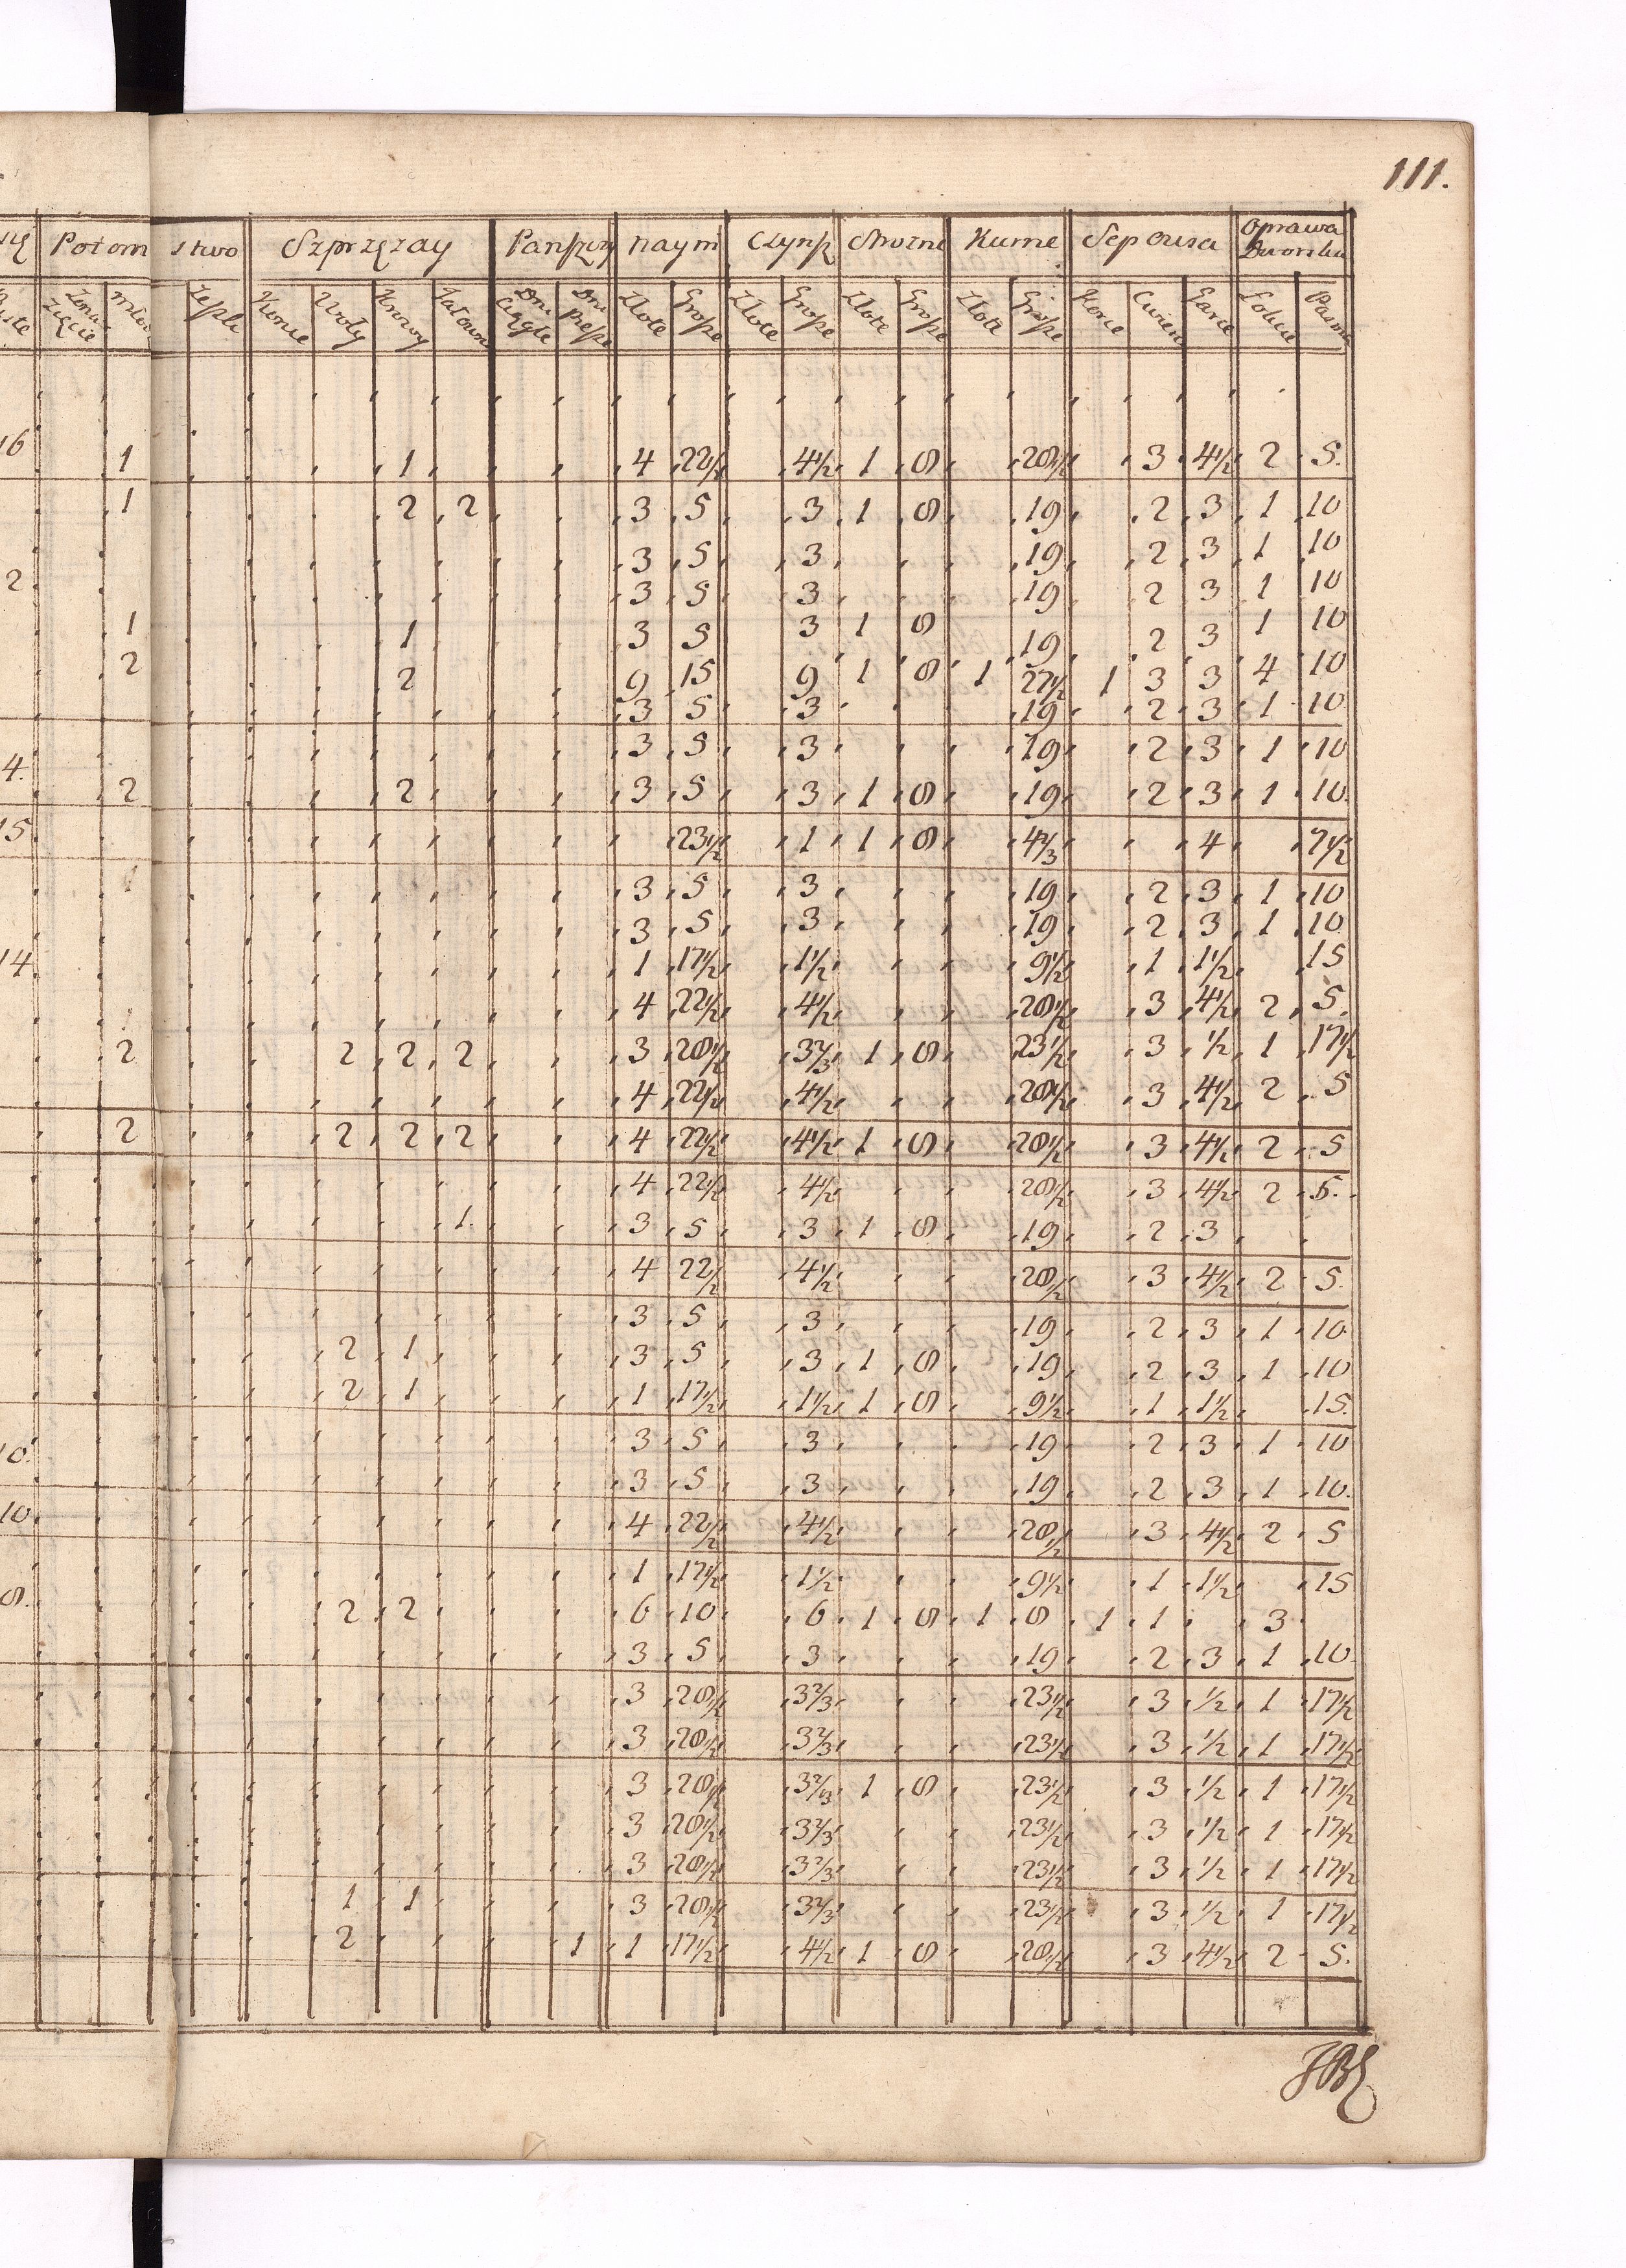 111.
Potom stwo Szprzężay Pańszczy naym Czynsz Strożne Kurne Sep Owsa Oprawa Dworska
Konie Woły Krowy Jałown Dni Ciągłe Dni piesze Złote Grosze Złote Grosze Złote Grosze Złote Grosze Korce Cwierci Garce Łokcie Pasma
16 1 1 4 22½ 4½ 1 8 28½ 3 4½ 2 5.
1 2 2 3 5 3 1 8 19 2 3 1 10
3 5 3 19 2 3 1 10
2 3 5 3 19 2 3 1 10
1 1 3 5 3 1 8 19 2 3 1 10
2 2 9 15 9 1 8 1 27½ 1 3 3 4 10
3 5 3 19 2 3 1 10
4. 3 5 3 19 2 3 1 10
2 2 3 5 3 1 8 19 2 3 1 10.
15 23½ 1 1 8 4⅔ 4 7½
1 3 5 3 19 2 3 1 10
3 5 3 19 2 3 1 10
14 1 17½ 1½ 9½ 1 1½ 15
4 22½ 4½ 28½ 3 4½ 2 5.
2 2 2 2 3 28½ 3⅔ 1 8 23½ 3 ½ 1 17½
4 22½ 4½ 28½ 3 4½ 2 5
2 2 2 2 4 22½ 4½ 1 8 28½ 3 4½ 2 5
4 22½ 4½ 28½ 3 4½ 2 5.
1. 3 5 3 1 8 19 2 3
4 22½ 4½ 28½ 3 4½ 2 5.
3 5 3 19 2 3 1 10
2 1 3 5 3 1 8 19 2 3 1 10
2 1 1 17½ 1½ 1 8 9½ 1 1½ 15.
10. 3 5 3 19 2 3 1 10
3 5 3 19 2 3 1 10.
10. 4 22½ 4½ 28½ 3 4½ 2 5
1 17½ 1½ 9½ 1 1½ 15
8. 2 2 6 10 6 1 8 1 8 1 1 3
3 5 3 19 2 3 1 10
3 28½ 3⅔ 23½ 3 ½ 1 17½
3 28½ 3⅔ 23½ 3 ½ 1 17½
3 28½ 3⅔ 1 8 23½ 3 ½ 1 17½
3 28½ 3⅔ 23½ 3 ½ 1 17½
3 28½ 3⅔ 23½ 3 ½ 1 17½
1 1 3 28½ 3⅔ 23½ 3 ½ 1 17½
2 1 1 17½ 4½ 1 8 28½ 3 4½ 2 5.